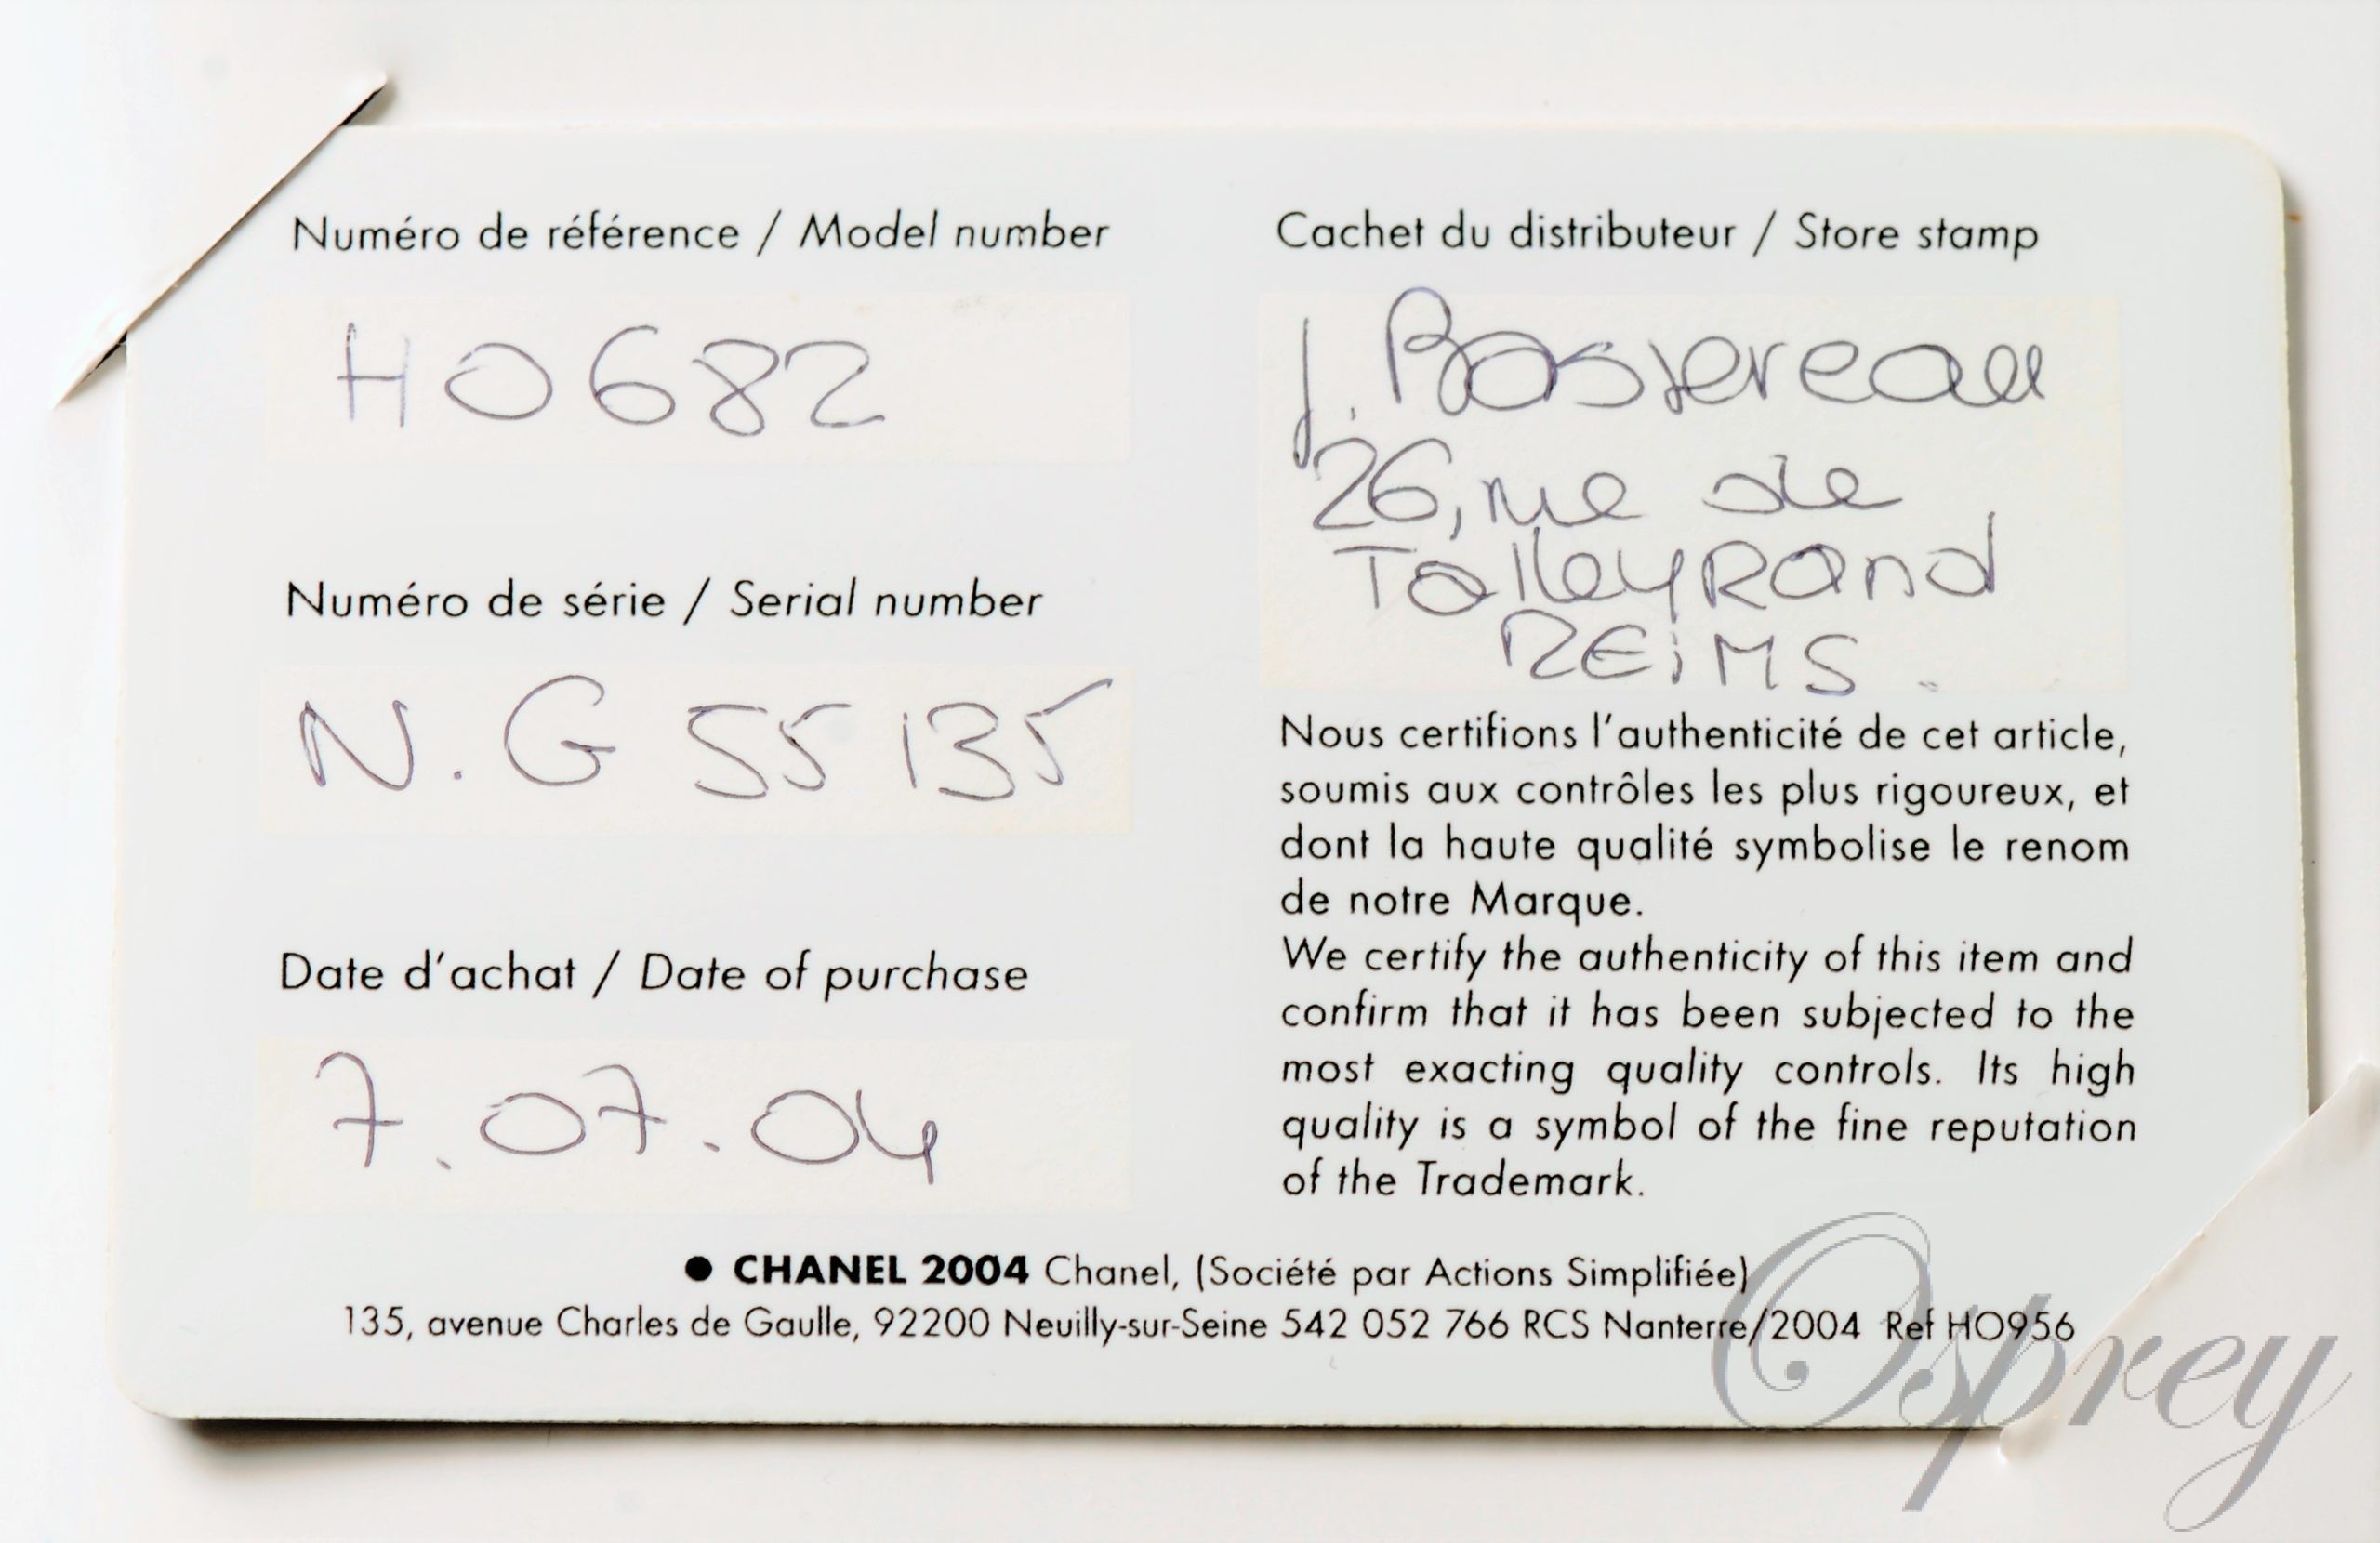 Numéro de référence / Model number
HO682
Numéro de série / Serial number
N.G 55135
Date d'achat / Date of purchase
7.07.04
Cachet du distributeur / Store stamp
J. Bossereau
26, rue de
TalleyRand
REiMS.
Nous certifions l'authenticité de cet article,
soumis aux contrôles les plus rigoureux, et
dont la haute qualité symbolise le renom
de notre Marque.
We certify the authenticity of this item and
confirm that it has been subjected to the
most exacting quality controls. Its high
quality is a symbol of the fine reputation
of the Trademark.
● CHANEL 2004 Chanel, (Société par Actions Simplifiée)
135, avenue Charles de Gaulle, 92200 Neuilly-sur-Seine 542 052 766 RCS Nanterre/2004 Ref HO956
Osprey